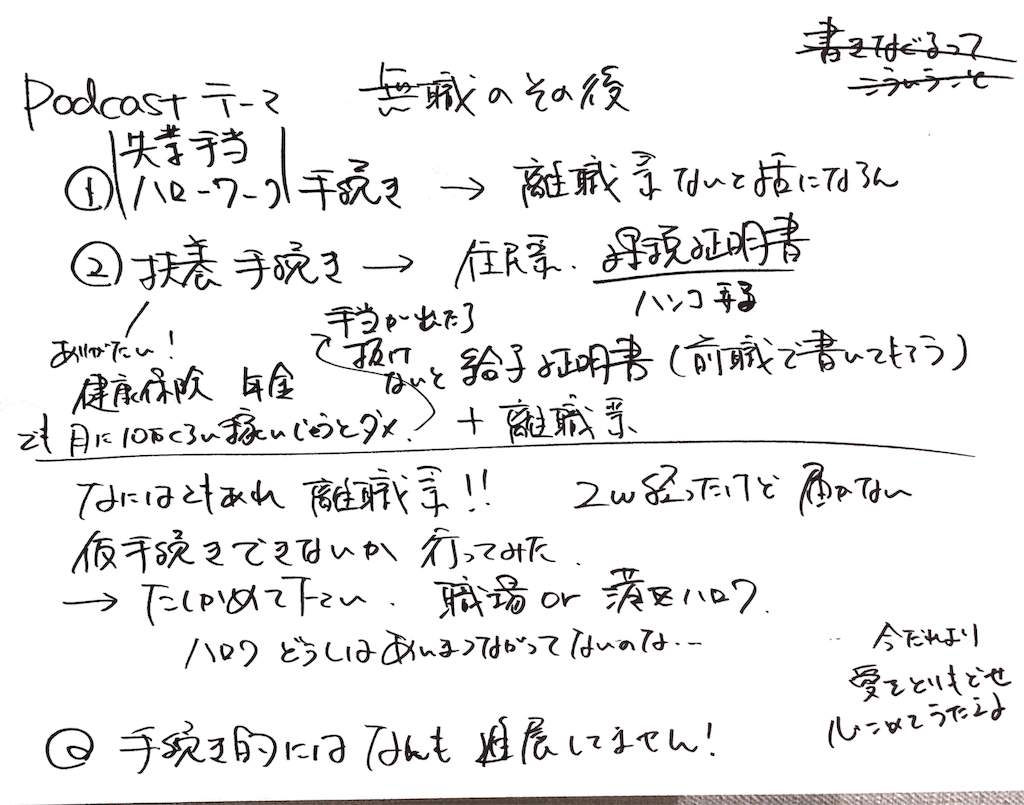 書きなぐるって
こういうこと
Podcast テーマ 無職のその後
失業手当
① ハローワーク 手続き → 離職票ないと話にならん
② 扶養手続き → 住民票. 課税証明書
ハンコ要る
ありがたい!
手当が出たら
抜け
ないと 給与証明書(前職で書いてもらう)
健康保険 年金
でも月に10万くらい稼いじゃうとダメ. + 離職票
なにはともあれ 離職票!! 2w経ったけど 届かない
仮手続きできないか 行ってみた.
→ たしかめて下さい. 職場 or 港区ハロワ.
ハロワ どうしはあんまつながってないのな...
手続き的には なんも 進展してません!
今だれより
愛をとりもどせ
心こめてうたうよ